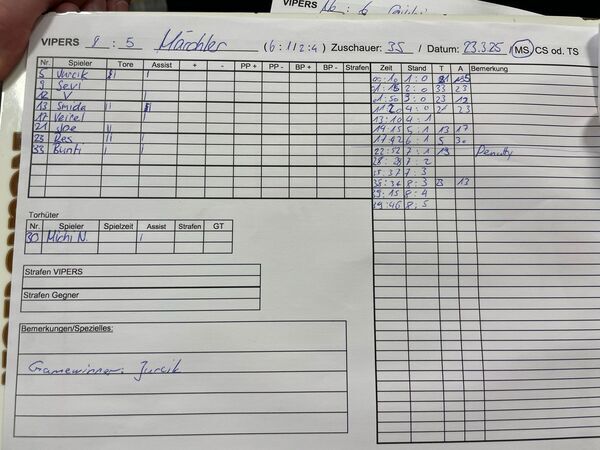 VIPERS 9 : 5 Märchler (6:1/2:4) Zuschauer: 35 / Datum: 23.3.25 / MS CS od. TS
Nr. Spieler Tore Assist + - PP + PP - BP + BP - Strafen
5 Jurcik II I
9 Sevi I
12 V I
13 Smida II
17 Veicel I
21 Joe II
23 Res II I
33 Bünti I
Zeit Stand T A Bemerkung
00:10 1:0
01:15 2:0 33 23
01:50 3:0 23 12
11:20 4:0 21 23
13:10 4:1
14:15 5:1 13 17
17:42 6:1 5 30
23:52 7:1 13 Penalty
28:28 7:2
35:37 7:3
38:34 8:3 13
39:15 8:4
39:46 8:5
Torhüter
Nr. Spieler Spielzeit Assist Strafen GT
30 Michi N. I
Strafen VIPERS
Strafen Gegner
Bemerkungen/Spezielles:
Gamewinner: Jurcik